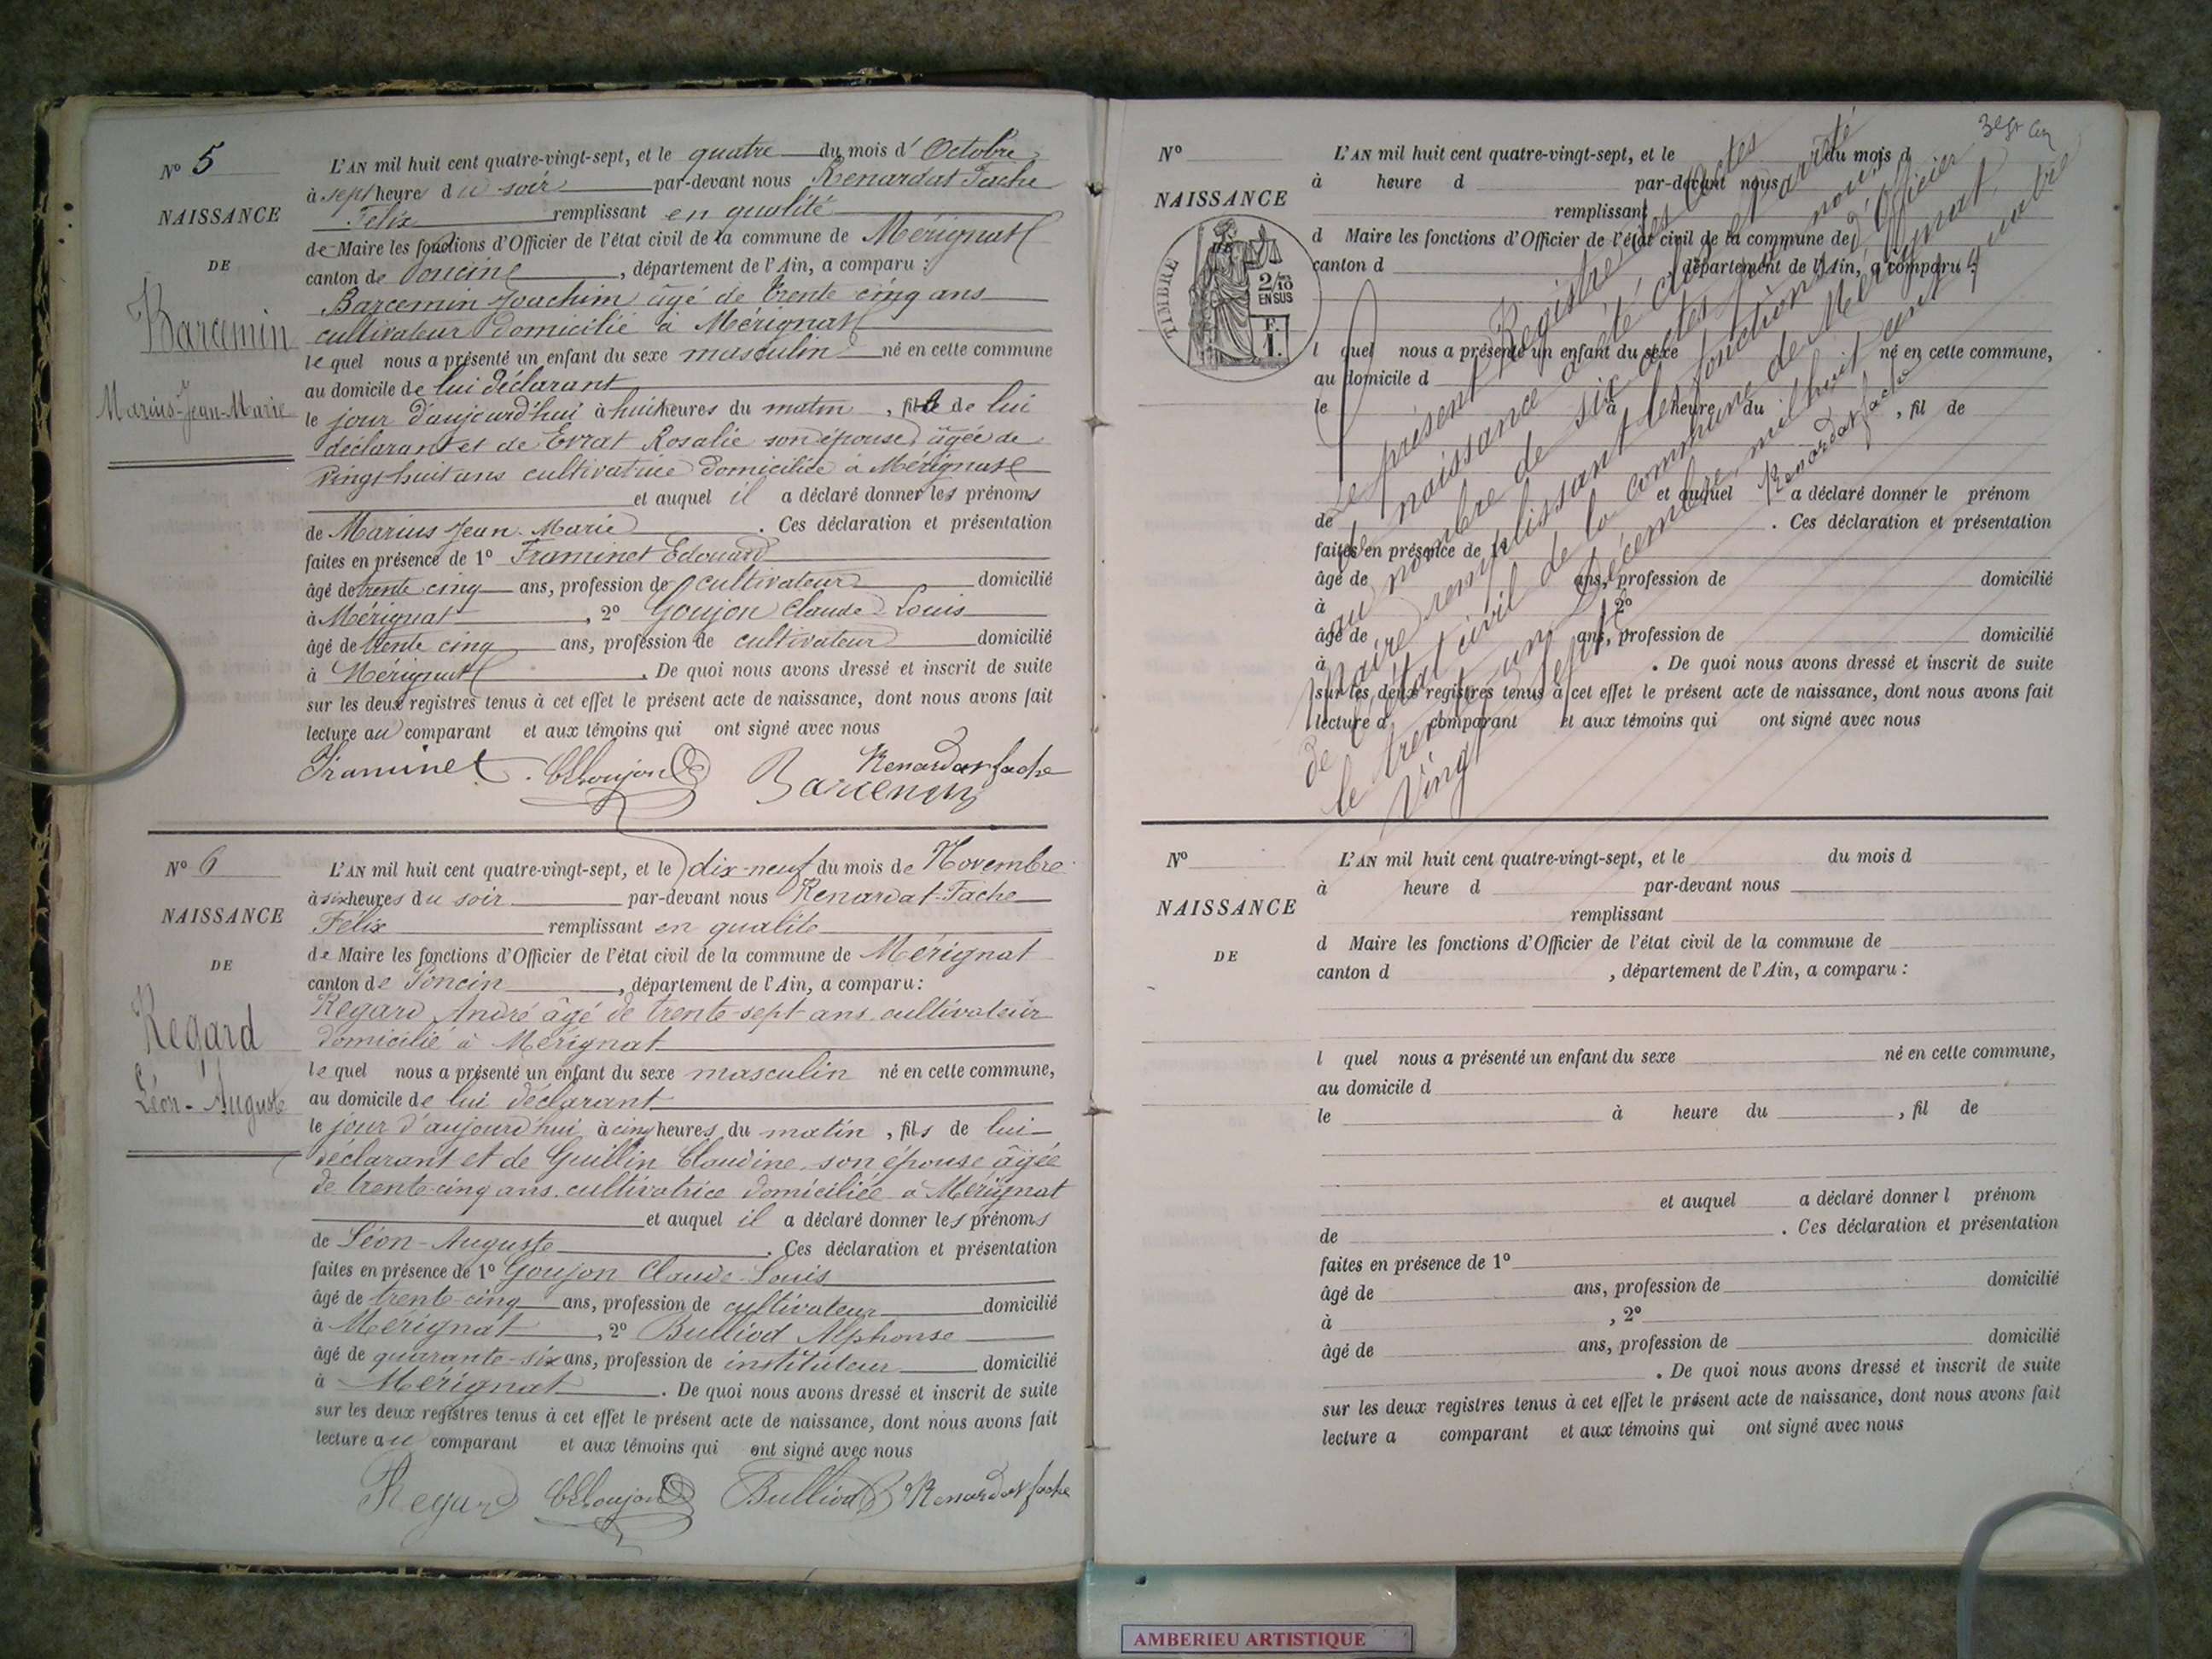 N° 5
NAISSANCE
DE
Barcemin
Marius-Jean-Marie
L'AN mil huit cent quatre-vingt-sept, et le quatre du mois d' Octobre
à sept heure du soir par-devant nous Renardat Fache
Felix remplissant en qualité
de Maire les fonctions d'Officier de l'état civil de la commune de Mérignat
canton de Poncin, département de l'Ain, a comparu :
Barcemin Joachim âgé de trente cinq ans
cultivateur domicilié à Mérignat
lequel nous a présenté un enfant du sexe masculin né en cette commune
au domicile de lui déclarant
le jour d'aujourd'hui à huit heures du matin, fils de lui
déclarant et de Evrat Rosalie son épouse âgée de
vingt huit ans cultivatrice domiciliée à Mérignat
et auquel il a déclaré donner les prénoms
de Marius Jean Marie. Ces déclaration et présentation
faites en présence de 1° Framinet Edouard
âgé de trente cinq ans, profession de cultivateur domicilié
à Mérignat, 2° Goujon Claude Louis
âgé de trente cinq ans, profession de cultivateur domicilié
à Mérignat. De quoi nous avons dressé et inscrit de suite
sur les deux registres tenus à cet effet le présent acte de naissance, dont nous avons fait
lecture au comparant et aux témoins qui ont signé avec nous
Framinet CLGoujon Barcemin Renardat fache
N° 6
NAISSANCE
DE
Regard
Léon-Auguste
L'AN mil huit cent quatre-vingt-sept, et le dix-neuf du mois de Novembre
à six heures du soir par-devant nous Renardat-Fache
Félix remplissant en qualité
de Maire les fonctions d'Officier de l'état civil de la commune de Mérignat
canton de Poncin, département de l'Ain, a comparu :
Regard André âgé de trente-sept ans cultivateur
domicilié à Mérignat
lequel nous a présenté un enfant du sexe masculin né en cette commune,
au domicile de lui déclarant
le jour d'aujourd'hui à cinq heures du matin, fils de lui
déclarant et de Guillin Claudine son épouse âgée
de trente-cinq ans cultivatrice domiciliée à Mérignat
et auquel il a déclaré donner les prénoms
de Léon-Auguste. Ces déclaration et présentation
faites en présence de 1° Goujon Claude-Louis
âgé de trente-cinq ans, profession de cultivateur domicilié
à Mérignat, 2° Bulliod Alphonse
âgé de quarante-six ans, profession de instituteur domicilié
à Mérignat. De quoi nous avons dressé et inscrit de suite
sur les deux registres tenus à cet effet le présent acte de naissance, dont nous avons fait
lecture au comparant et aux témoins qui ont signé avec nous
Regard CLGoujon Bulliod Renardat fache
N°
NAISSANCE
DE
TIMBRE
2/10
EN SUS
F.
1.
L'AN mil huit cent quatre-vingt-sept, et le du mois d
à heure d par-devant nous
remplissant
d Maire les fonctions d'Officier de l'état civil de la commune de
canton d , département de l'Ain, a comparu :
l quel nous a présenté un enfant du sexe né en cette commune,
au domicile d
le à heure du , fil de
et auquel a déclaré donner le prénom
de . Ces déclaration et présentation
faites en présence de 1°
âgé de ans, profession de domicilié
à , 2°
âgé de ans, profession de domicilié
à . De quoi nous avons dressé et inscrit de suite
sur les deux registres tenus à cet effet le présent acte de naissance, dont nous avons fait
lecture a comparant et aux témoins qui ont signé avec nous
Le présent Registre des actes
de naissance a été clos et arrêté
au nombre de six actes par nous
Maire remplissant les fonctions d'Officier
de l'état civil de la commune de Mérignat,
le trente-un Décembre mil huit cent quatre
vingt sept
Renardat fache
N°
NAISSANCE
DE
L'AN mil huit cent quatre-vingt-sept, et le du mois d
à heure d par-devant nous
remplissant
d Maire les fonctions d'Officier de l'état civil de la commune de
canton d , département de l'Ain, a comparu :
l quel nous a présenté un enfant du sexe né en cette commune,
au domicile d
le à heure du , fil de
et auquel a déclaré donner l prénom
de . Ces déclaration et présentation
faites en présence de 1°
âgé de ans, profession de domicilié
à , 2°
âgé de ans, profession de domicilié
. De quoi nous avons dressé et inscrit de suite
sur les deux registres tenus à cet effet le présent acte de naissance, dont nous avons fait
lecture a comparant et aux témoins qui ont signé avec nous
AMBERIEU ARTISTIQUE